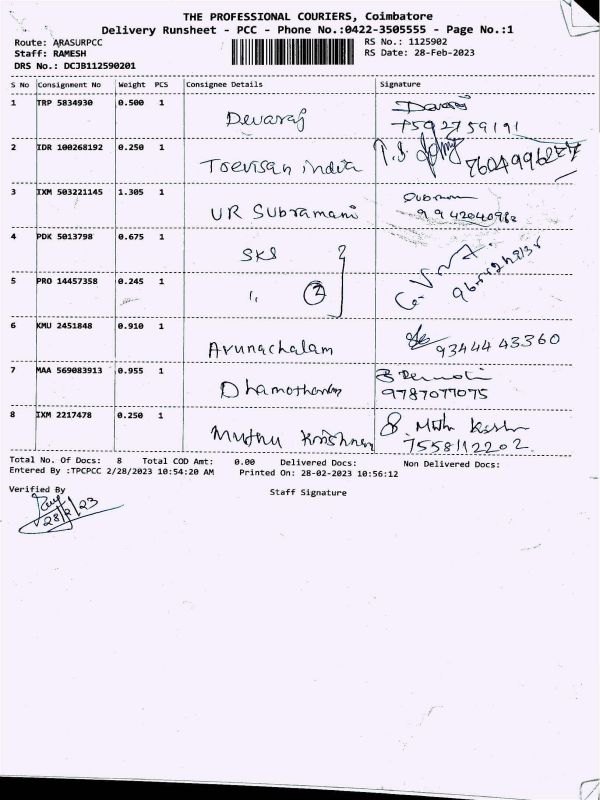 THE PROFESSIONAL COURIERS, Coimbatore
Delivery Runsheet - PCC - Phone No.:0422-3505555 - Page No.:1
Route: ARASURPCC RS No.: 1125902
Staff: RAMESH RS Date: 28-Feb-2023
DRS No.: DCJB112590201
S No Consignment No Weight PCS Consignee Details Signature
1 TRP 5834930 0.500 1 Devaraj Devaraj
7592759191
2 IDR 100268192 0.250 1 Toevisan india
3 IXM 503221145 1.305 1 UR Subramani
4 PDK 5013798 0.675 1 SKS
5 PRO 14457358 0.245 1 " 2
6 KMU 2451848 0.910 1 Arunachalam 93444 43360
7 MAA 569083913 0.955 1 Dhamotharan
9787077075
8 IXM 2217478 0.250 1 Muthu Krishnan
7558112202
Total No. Of Docs: 8 Total COD Amt: 0.00 Delivered Docs: Non Delivered Docs:
Entered By :TPCPCC 2/28/2023 10:54:20 AM Printed On: 28-02-2023 10:56:12
Verified By Staff Signature
28/2/23